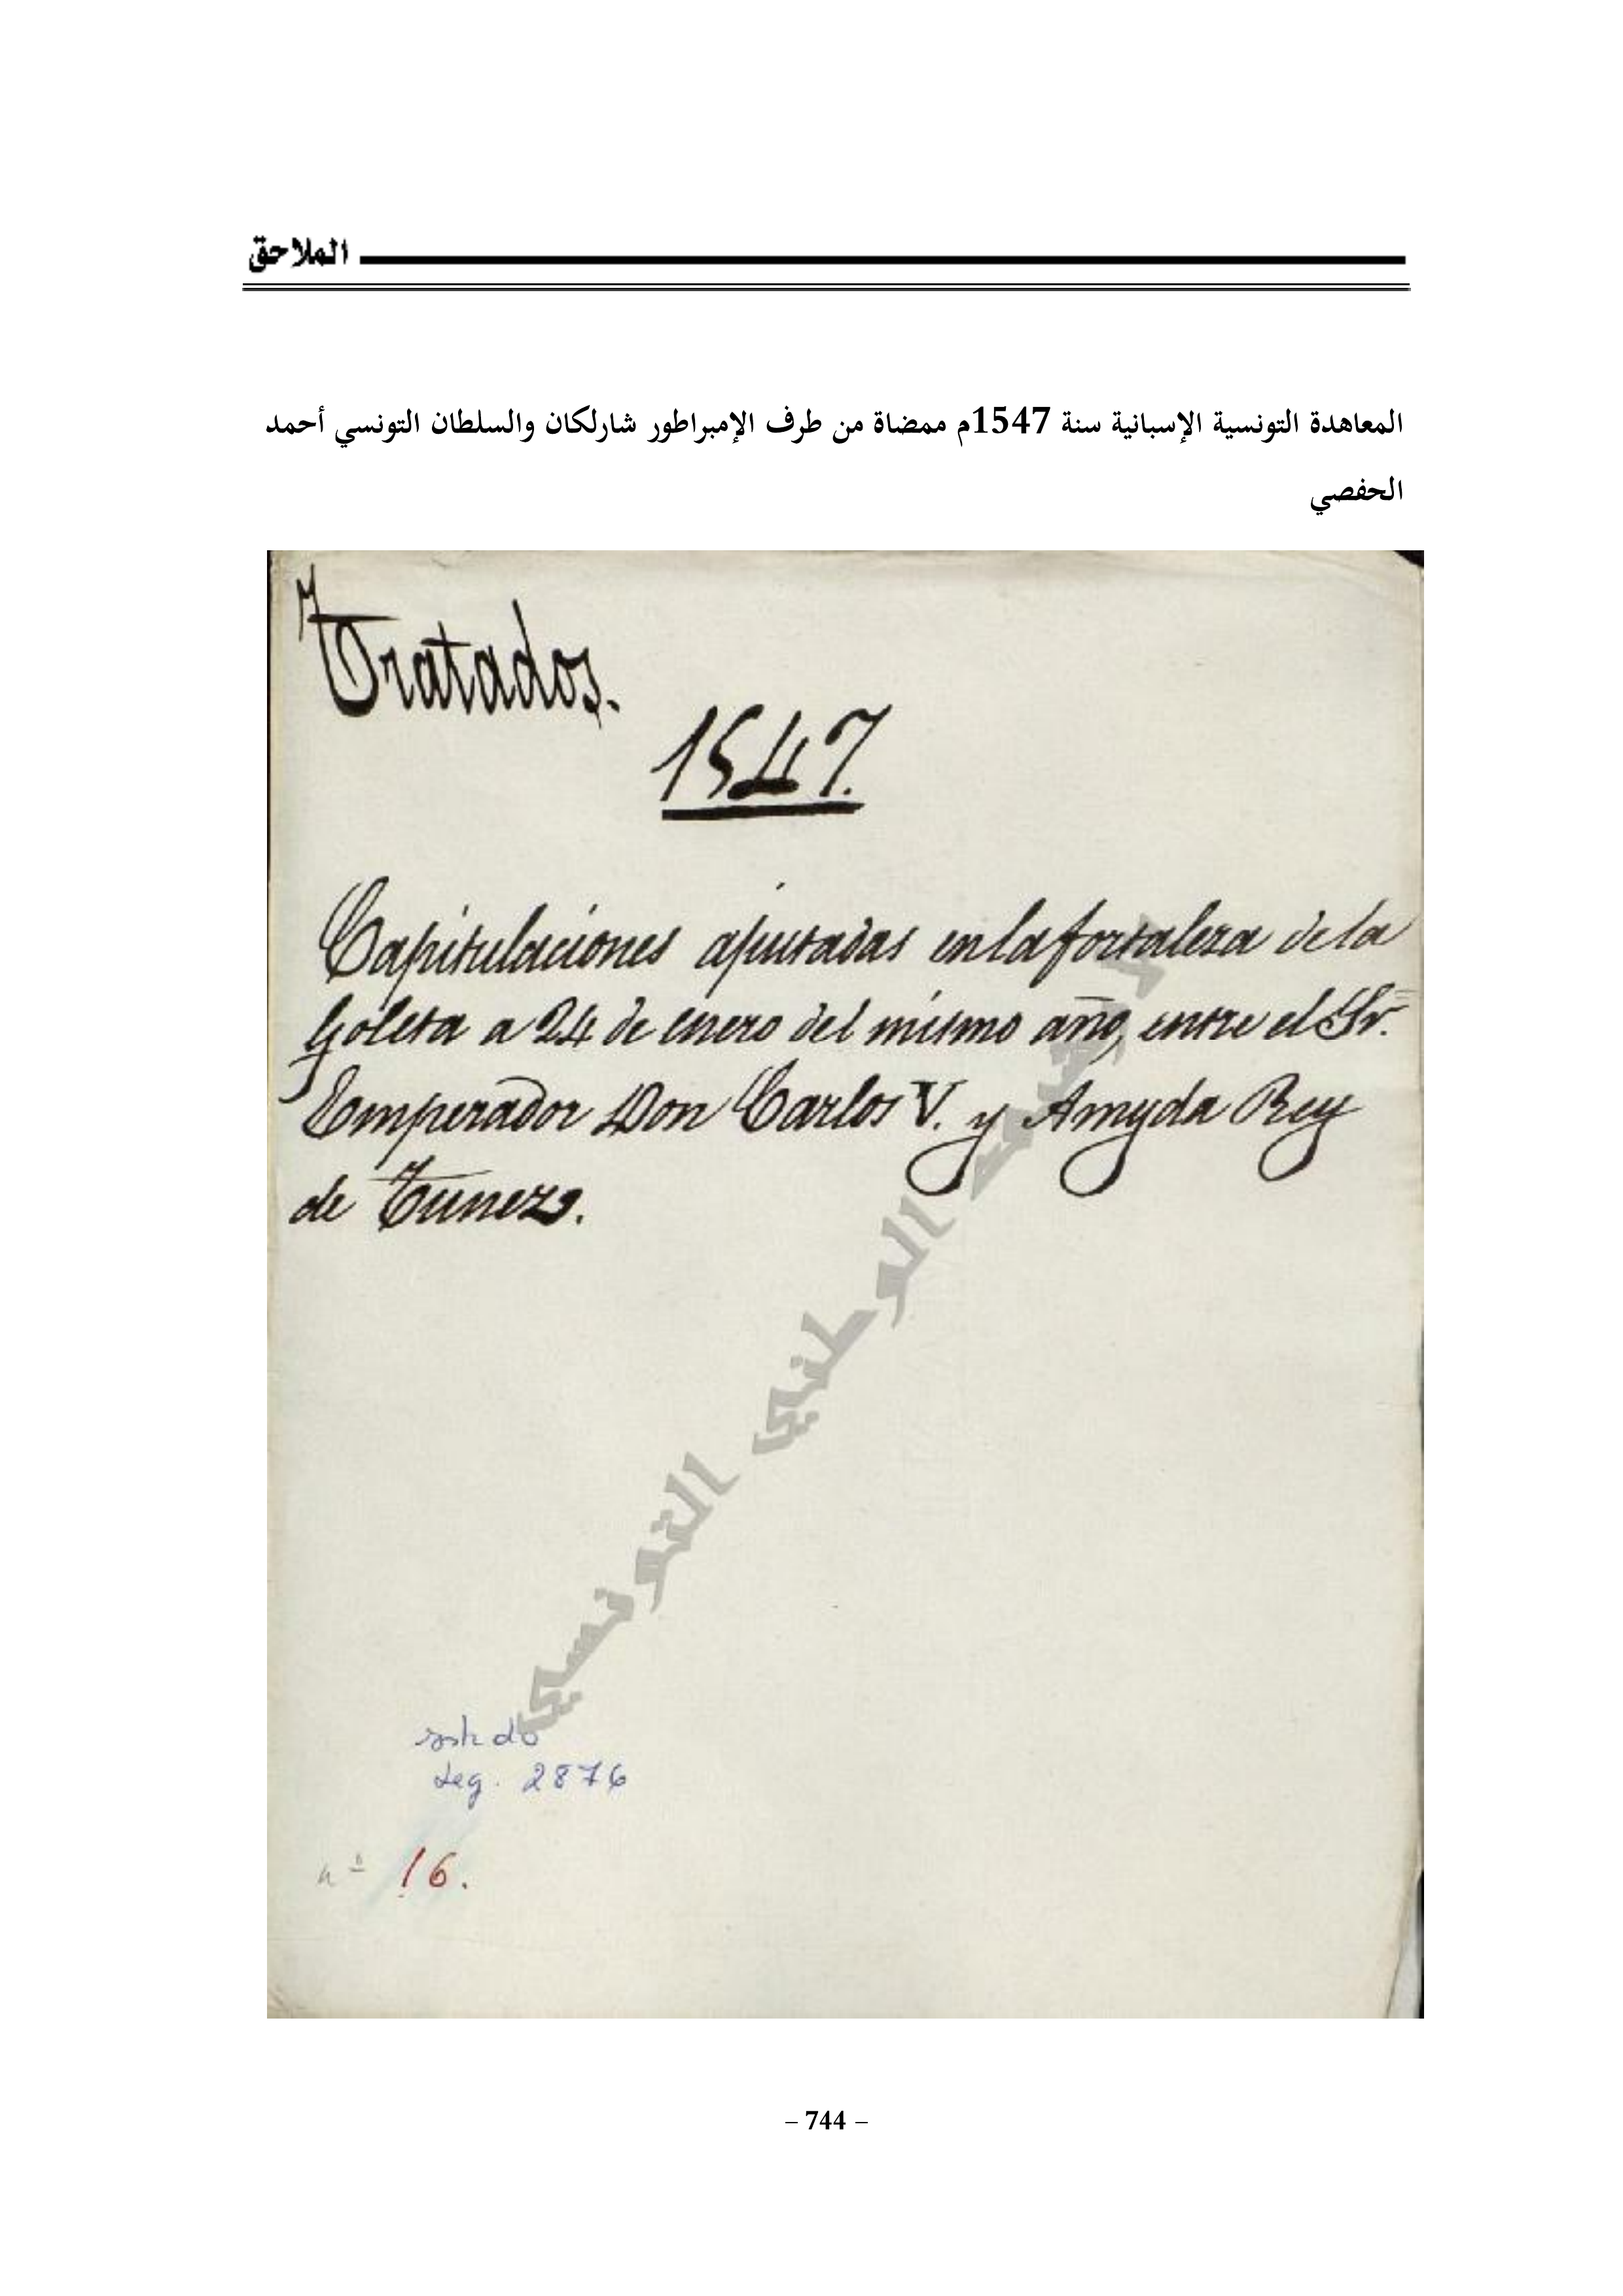 الملاحق
المعاهدة التونسية الإسبانية سنة 1547م ممضاة من طرف الإمبراطور شارلكان والسلطان التونسي أحمد
الحفصي
Tratados.
1547.
Capitulaciones ajustadas en la fortaleza de la
Goleta a 24 de enero del mismo año, entre el Sr.
Emperador Don Carlos V. y Amyda Rey
de Tunez.
الأرشيف الوطني التونسي
Leg. 2876
nº 16.
– 744 –